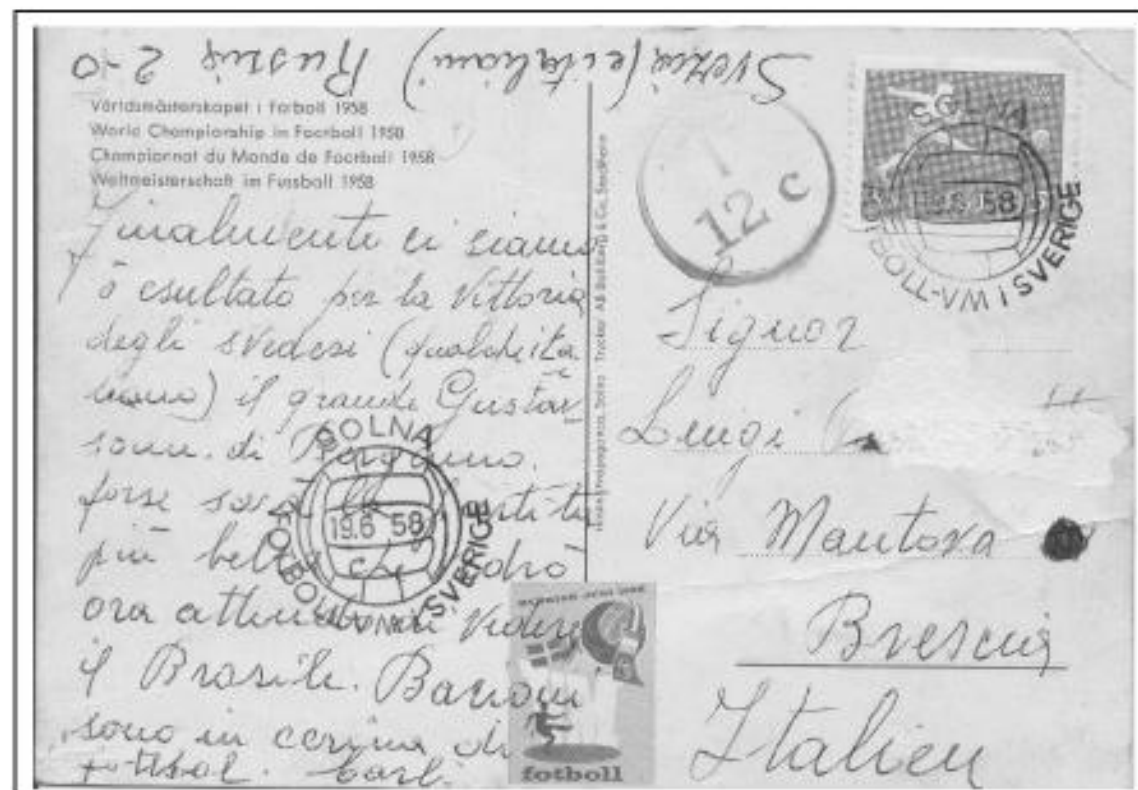 Svezia (e italiani) Russia 2-0
Världsmästerskapet i fotboll 1958
World Championship in Football 1958
Championnat du Monde de Football 1958
Weltmeisterschaft im Fussball 1958
Finalmente ci siamo
è esultato per la vittoria
degli svedesi (qualche ita
liano) il grande Gustav
sonn. di Bergamo.
forse sarà la partita
più bella che vedrò
ora attendo di vedere
il Brasile. Bacioni
sono in cerima di
SOLNA
19.6 58
FOTBOLL-VM I SVERIGE
fotboll
12 c
SOLNA
19.6 58
FOTBOLL-VM I SVERIGE
Signor
Luigi
Via Mantova
Brescia
Italien